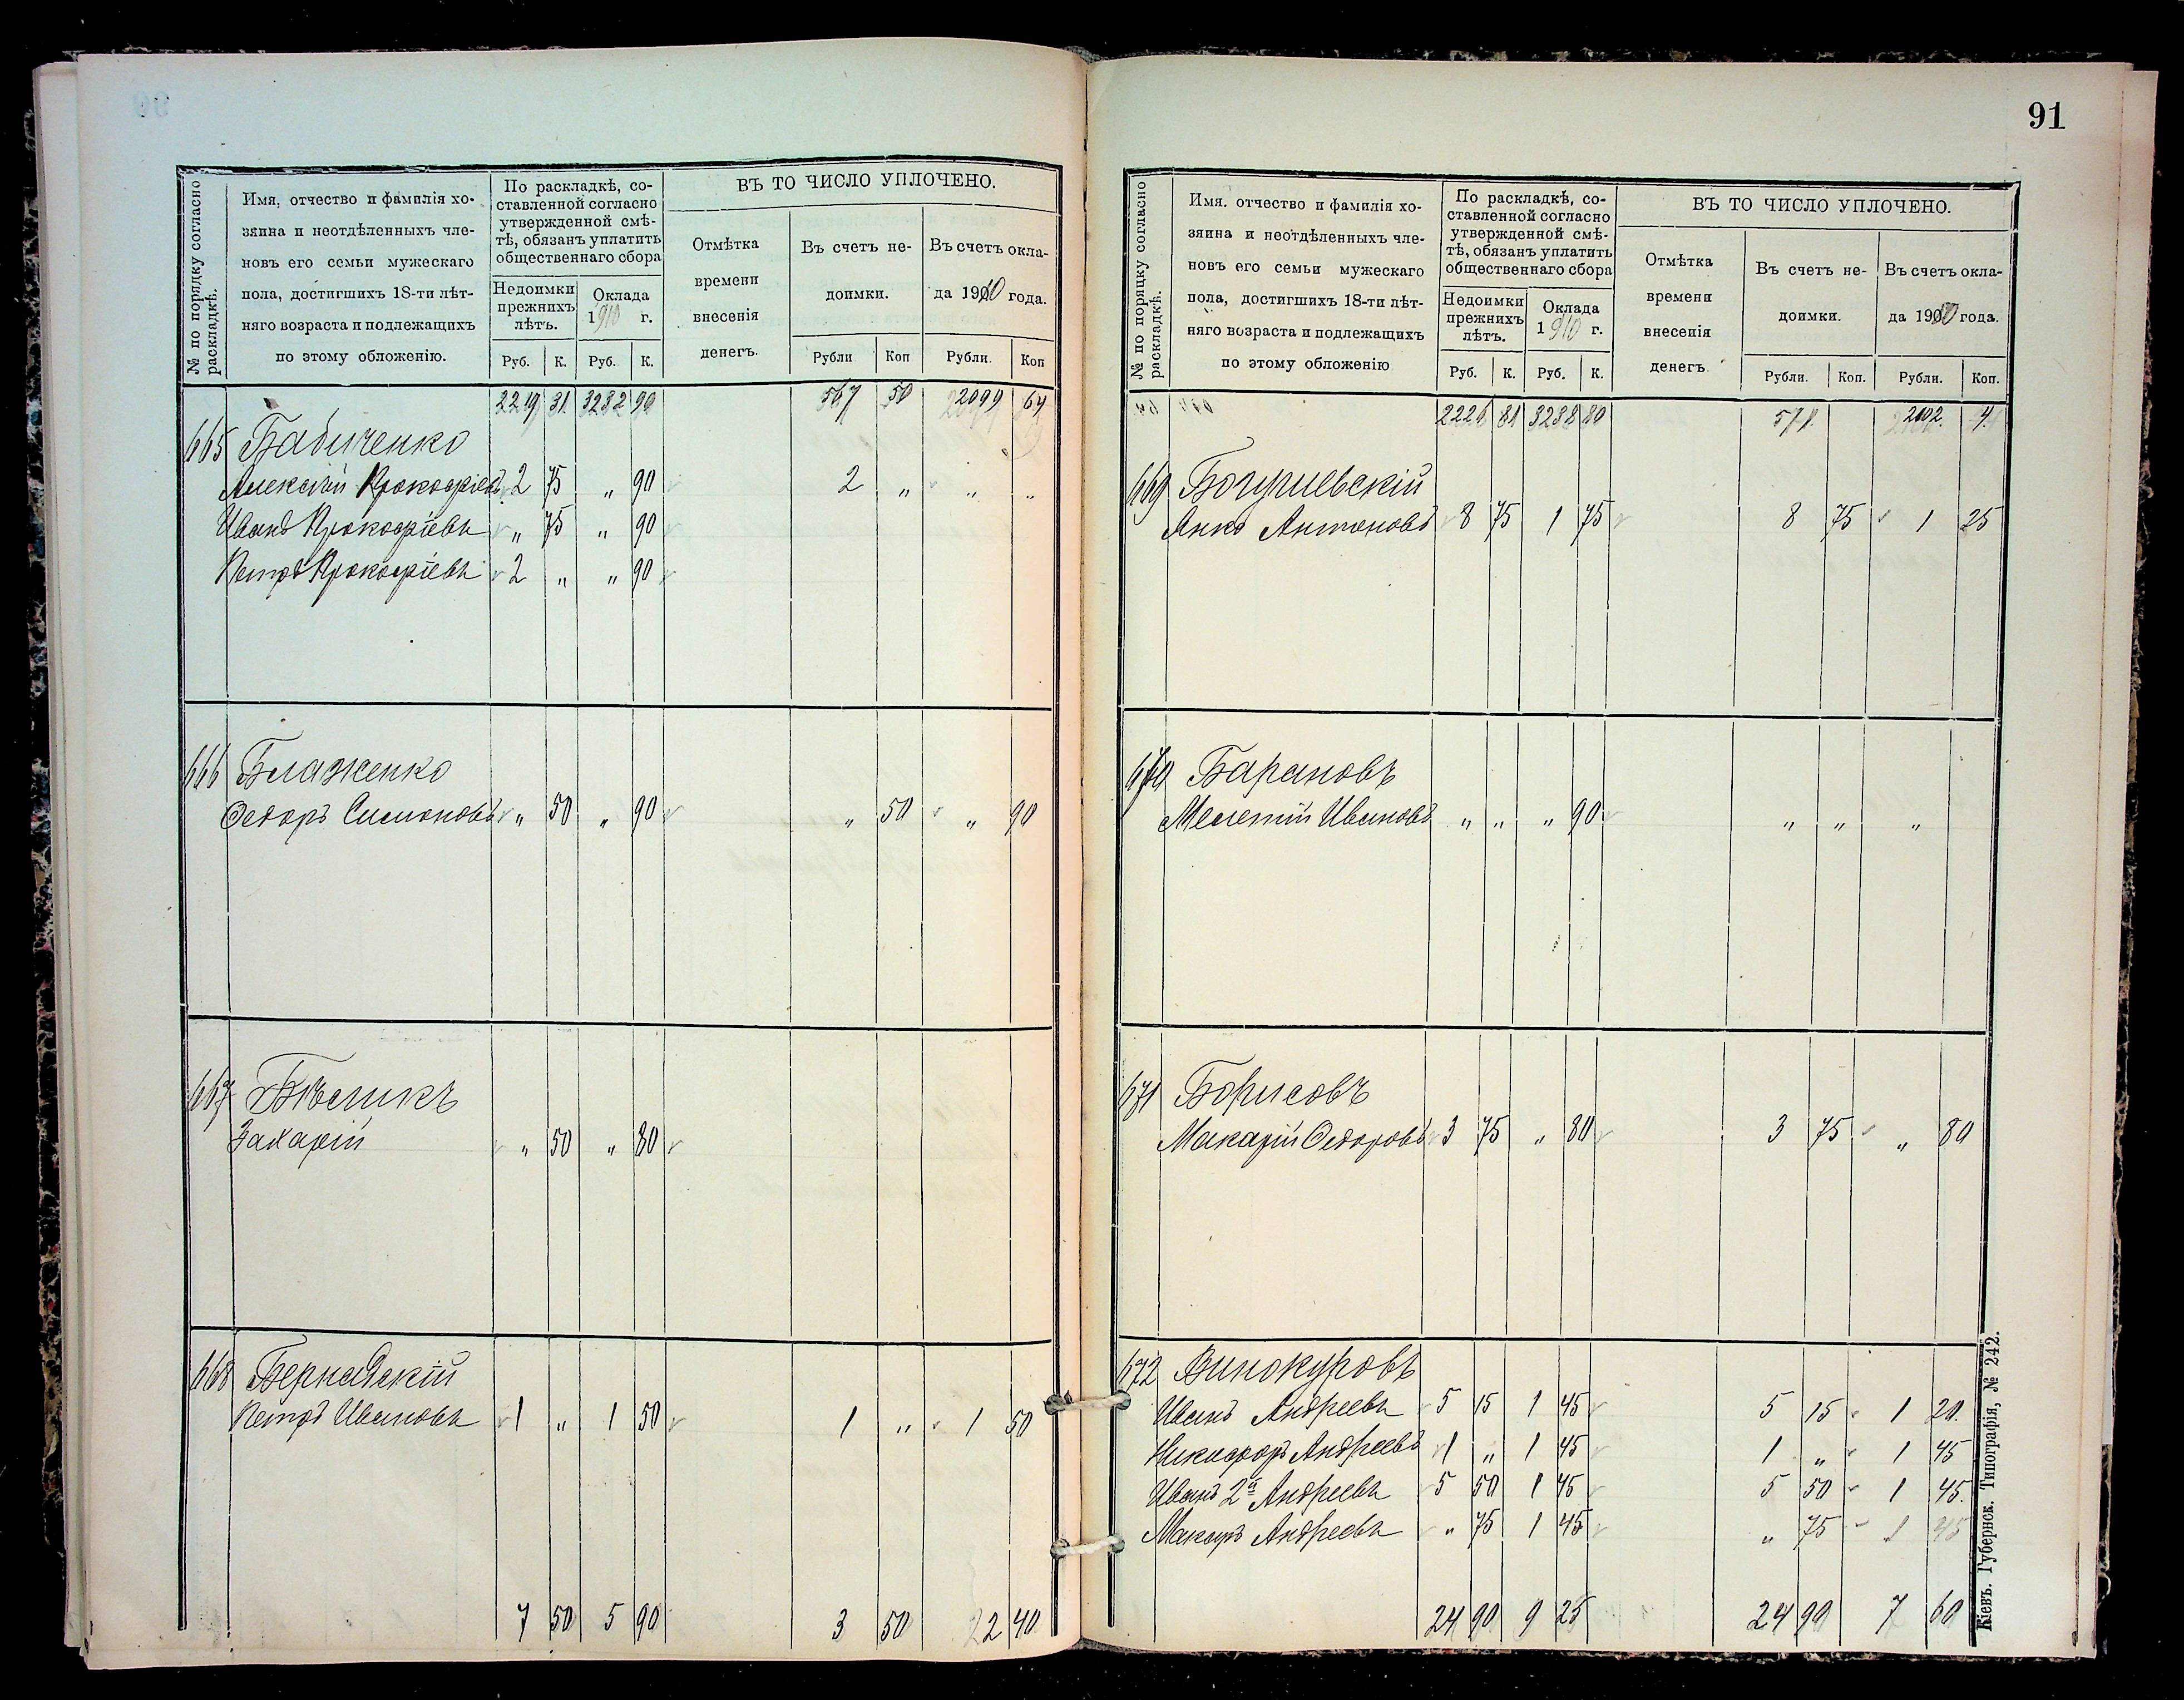 91
№ по порядку согласно раскладкѣ.
Имя, отчество и фамилія хо-
зяина и неотдѣленныхъ чле-
новъ его семьи мужескаго
пола, достигшихъ 18-ти лѣт-
няго возраста и подлежащихъ
по этому обложенію.
По раскладкѣ, со-
ставленной согласно
утвержденной смѣ-
тѣ, обязанъ уплатить
общественнаго сбора
Недоимки
прежнихъ
лѣтъ.
Оклада
1910 г.
Руб. К. Руб. К.
ВЪ ТО ЧИСЛО УПЛОЧЕНО.
Отмѣтка
времени
внесенія
денегъ.
Въ счетъ не-
доимки.
Въ счетъ окла-
да 1910 года.
Рубли Коп Рубли. Коп
2219 31 3232 90 567 50 2099 64
665 Бабиченко
Алексѣй Прокофіевъ 2 75 „ 90 2 „ „ „
Иванъ Прокофіевъ „ 75 „ 90
Петръ Прокофіевъ 2 „ „ 90
666 Блаженко
Федоръ Симоновъ „ 50 „ 90 „ 50 „ 90
667 Бѣликъ
Захарій „ 50 „ 80
668 Бернадскій
Петръ Ивановъ 1 „ 1 50 1 „ 1 50
7 50 5 90 3 50 2 40
№ по порядку согласно раскладкѣ.
Имя. отчество и фамилія хо-
зяина и неотдѣленныхъ чле-
новъ его семьи мужескаго
пола, достигшихъ 18-ти лѣт-
няго возраста и подлежащихъ
по этому обложенію
По раскладкѣ, со-
ставленной согласно
утвержденной смѣ-
тѣ, обязанъ уплатить
общественнаго сбора
Недоимки
прежнихъ
лѣтъ.
Оклада
1910 г.
Руб. К. Руб. К.
ВЪ ТО ЧИСЛО УПЛОЧЕНО.
Отмѣтка
времени
внесенія
денегъ.
Въ счетъ не-
доимки.
Въ счетъ окла-
да 1910 года.
Рубли. Коп. Рубли. Коп.
2226 81 3238 80 571 2102. 4
669 Богушевскій
Янко Антоновъ 8 75 1 75 8 75 1 25
670 Барановъ
Мелетій Ивановъ „ „ „ 90 „ „ „
671 Борисовъ
Макарій Федоровъ 3 75 „ 80 3 75 „ 80
672 Винокуровъ
Иванъ Андреевъ 5 15 1 45 5 15 1 20.
Никифоръ Андреевъ 1 „ 1 45 1 „ 1 45
Иванъ 2й Андреевъ 5 50 1 45 5 50 1 45.
Макаръ Андреевъ „ 75 1 45 „ 75 1 45
24 90 9 25 24 90 7 60
Кіевъ. Губернск. Типографія, № 242.